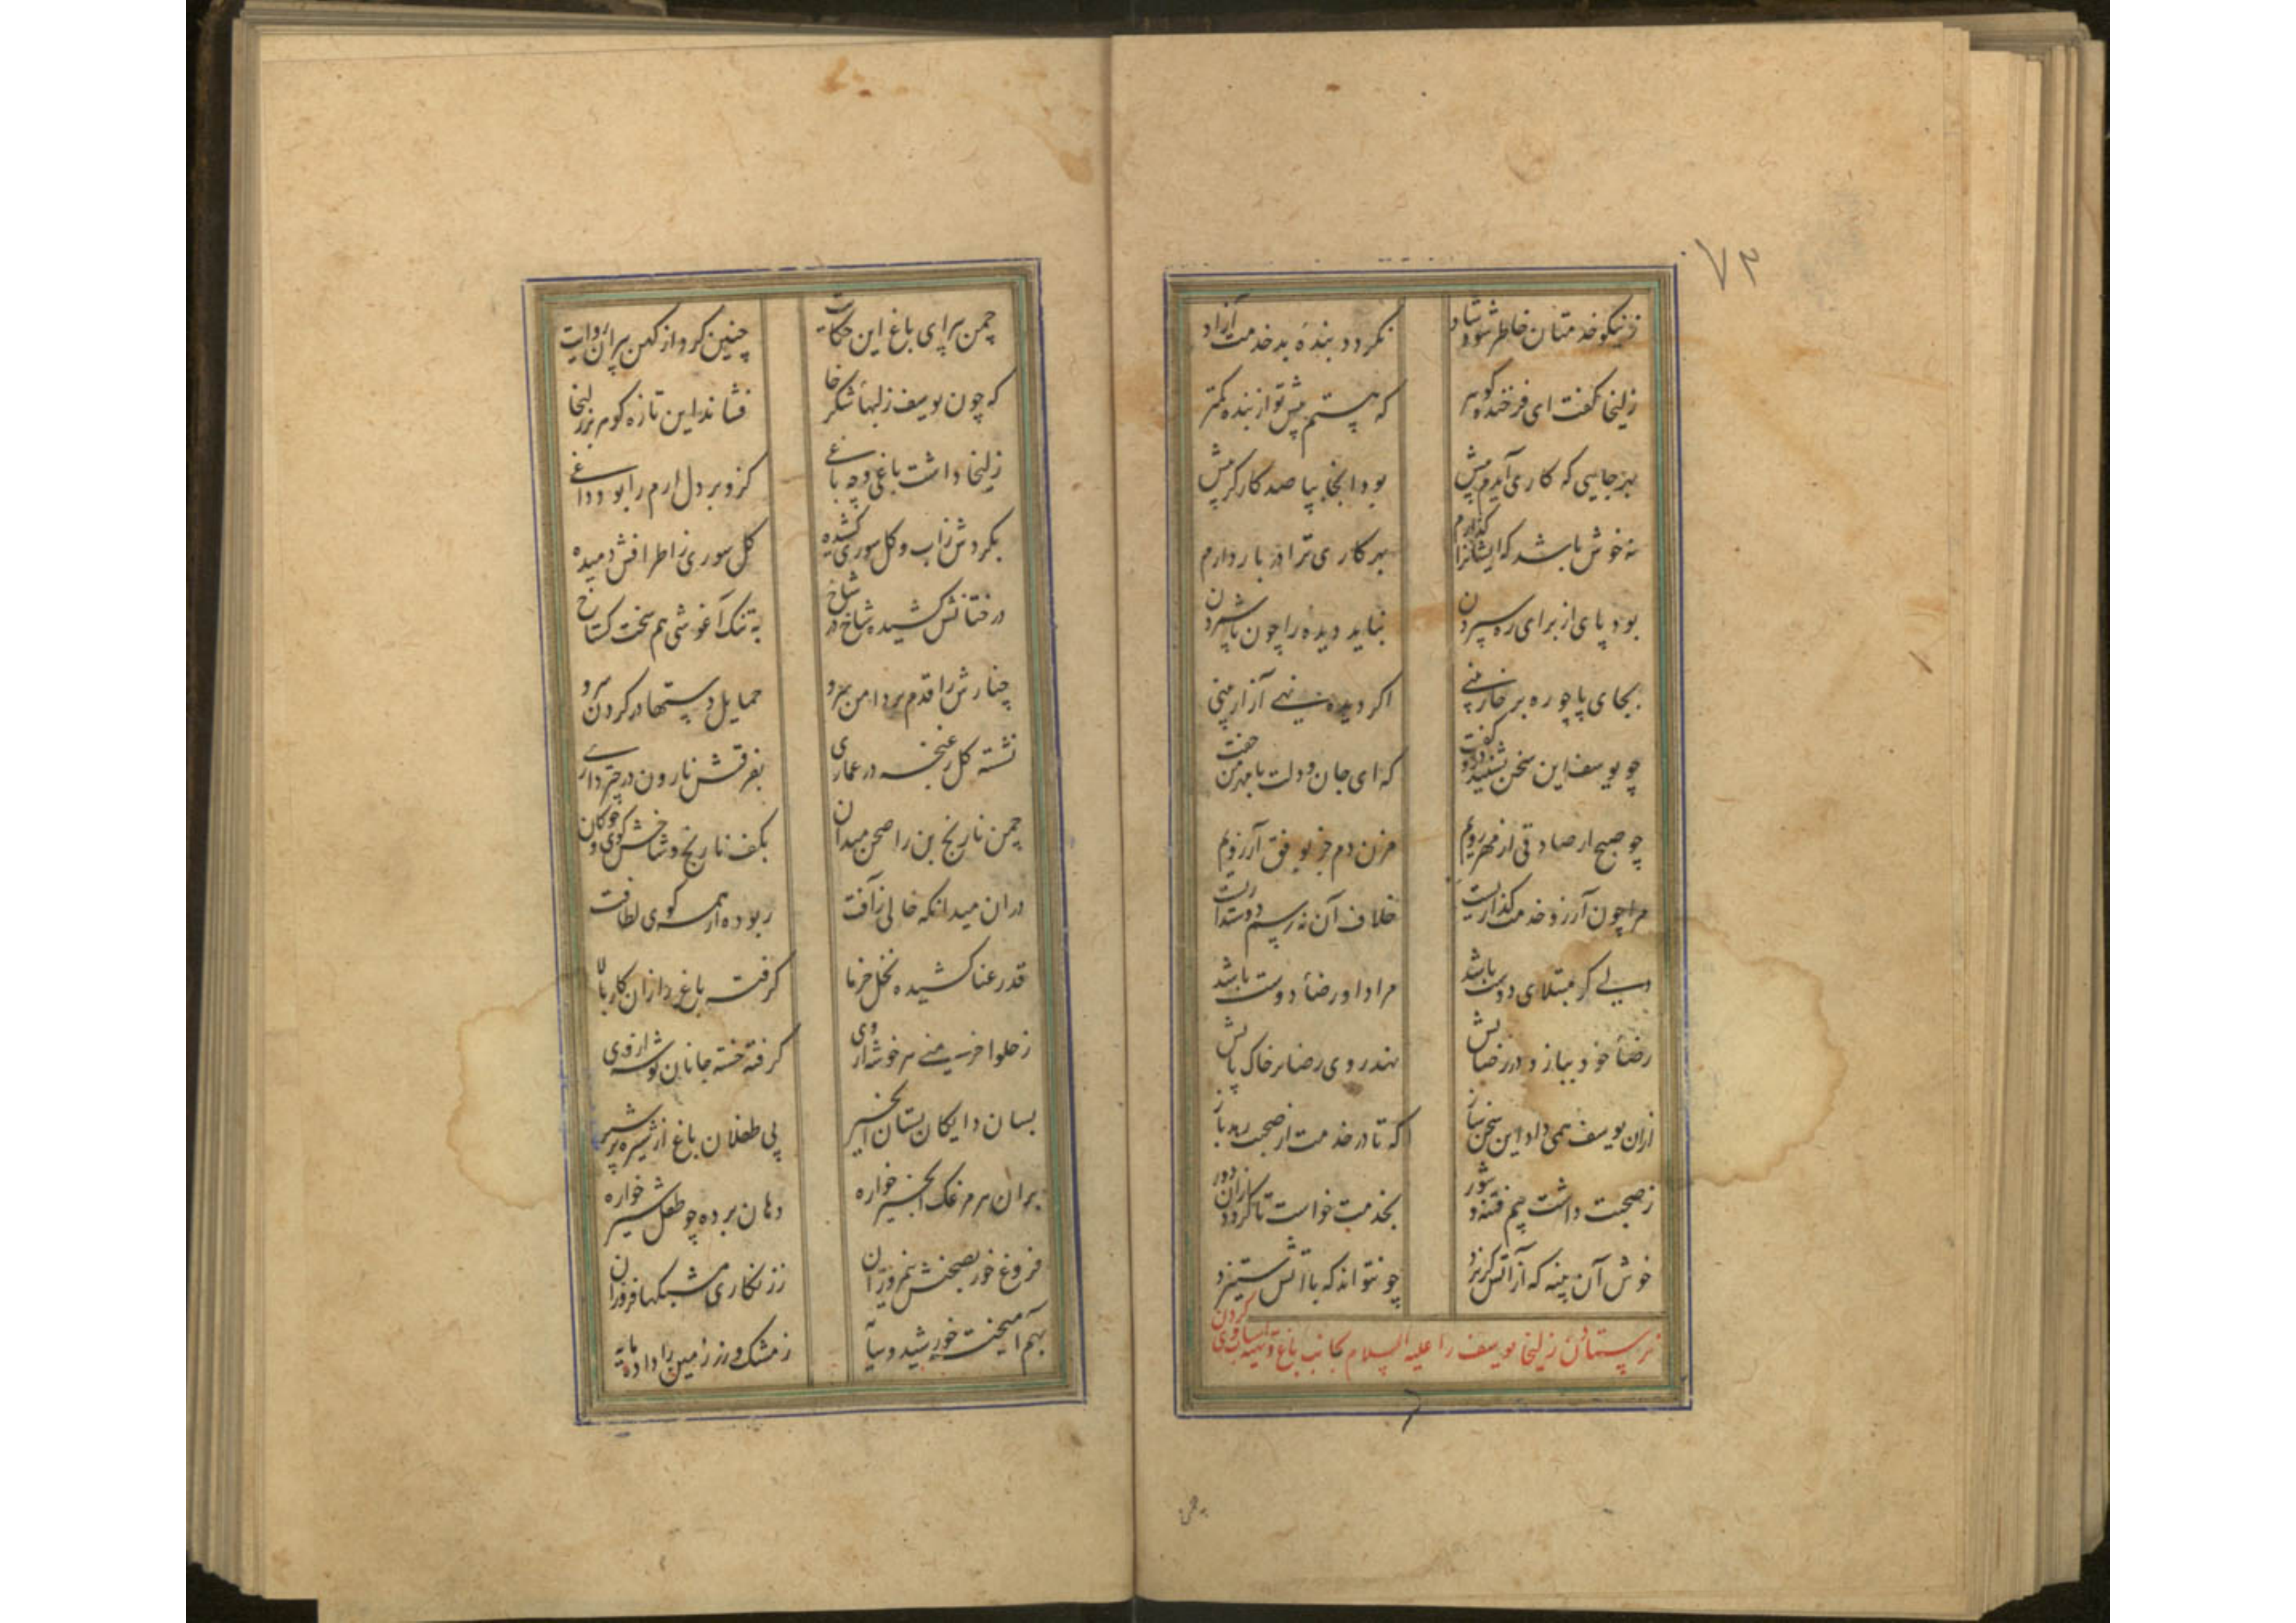 ۷۳
ز نیکو خدمتان خاطر شود شاد نکردد بندهٔ بد خدمت آزاد
زلیخا گفت ای فرخنده گوهر که هستم پیش تو از بنده کمتر
بهر جایی که کاری آیدم پیش بود آنجا بپا صد کارگر بیش
نه خوش باشد که ایشانرا گذارم بهر کاری ترا در بار دارم
بود پای از برای ره سپردن نباید دیده را چون پا شمردن
بجای پا چو ره بر خار بینی اگر دیده نهی آزار بینی
چو یوسف این سخن بشنید ازو گفت که ای جان و دلت با مهر من جفت
چو صبح ار صادقی از مهر رویم مزن دم جز بوفق آرزویم
مرا چون آرزو خدمت گذاریست خلاف آن نه رسم دوستداریست
دلی کو مبتلای دوست باشد مراد او رضای دوست باشد
رضای خود ببازد در رضایش نهد روی رضا بر خاک پایش
ازان یوسف همی داد این سخن ساز که تا در خدمت از صحبت رهد باز
ز صحبت داشت بیم فتنه و شور بخدمت خواست تا گردد ازان دور
خوش آن پنبه که از آتش گریزد چو نتواند که با آتش ستیزد
فرستادن زلیخا یوسف را علیه السلام بجانب باغ و تهیه اسباب وی کردن
چمن
چمن پیرای باغ این حکایت چنین کرد از کهن پیران روایت
که چون یوسف ز لبهای شکر خا فشاند این تازه گوهر بر زلیخا
زلیخا داشت باغی و چه باغی کزو بر دل ارم را بود داغی
بگردش ز آب و گل سوری کشیده گل سوری ز اطرافش دمیده
درختانش کشیده شاخ در شاخ به تنگ آغوشی هم سخت گستاخ
چنارش را قدم بر دامن سرو حمایل دستها در گردن سرو
نشسته گل ز غنچه در عماری بفرقش نارون در چترداری
چمن نارنج بن را صحن میدان بکف نارنج و شاخش گوی و چوگان
دران میدان که خالی ز آفت ربوده از همه گوی لطافت
قد رعنا کشیده نخل خرما گرفته باغ را زان کار بالا
ز حلوا خرمنی هر خوشه از وی گرفته خسته جانان توشه از وی
بسان دایگان پستان انجیر پی طفلان باغ از شیره پر شیر
بران هر مرغک انجیر خواره دهان برده چو طفل شیر خواره
فروغ خور بصحنش نیمروزان ز زنگاری مشبکها فروزان
بهم آمیخته خورشید و سایه ز مشک و زر زمین را داده مایه